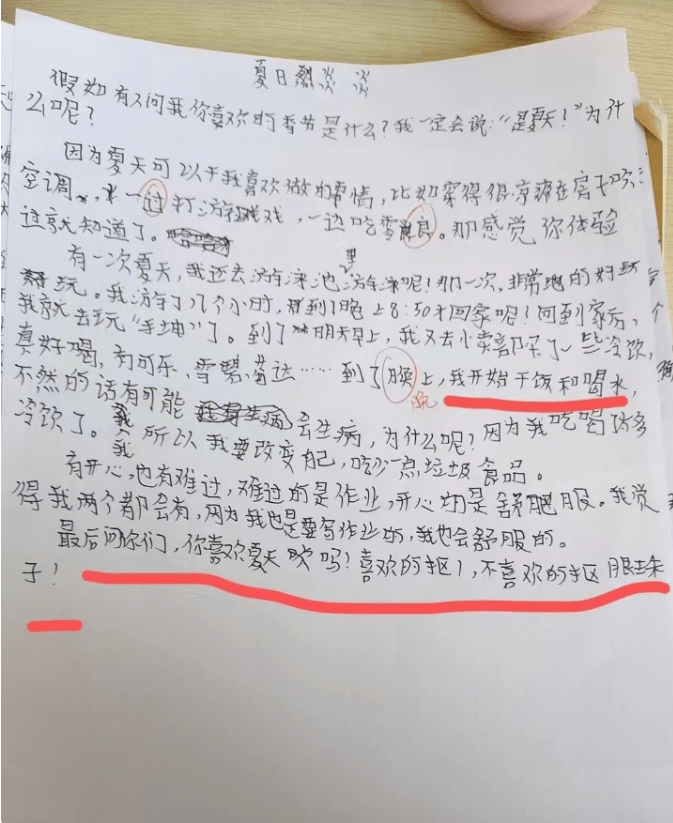 夏日烈火 火
假如有人问我你喜欢的季节是什么?我一定会说:“是夏天!”为什
么呢?
因为夏天可以干我喜欢做的事情,比如穿得很凉爽在房子吹
空调,一边打游戏,一边吃零食。那感觉你体验
这就知道了。
有一次夏天,我还去游泳池里游泳呢!那一次,非常地的好
玩。我游了几个小时,到晚上8:50才回家呢!回到家后,
我就去玩“手机”了。到了明天早上,我又去小卖部买了一些冷饮,
真好喝,有可乐、雪碧、芬达……到了晚上,我开始干饭和喝水,
晚
不然的话有可能会生病,为什么呢?因为我吃喝许多
冷饮了。我所以我要改变自己,吃少一点垃圾食品。
我
有开心,也有难过,难过的是作业,开心的是舒服。我觉
得我两个都会有,因为我也是要写作业的,我也会舒服的。
最后问你们,你喜欢夏天吗?喜欢的抠1,不喜欢的抠眼珠
子!